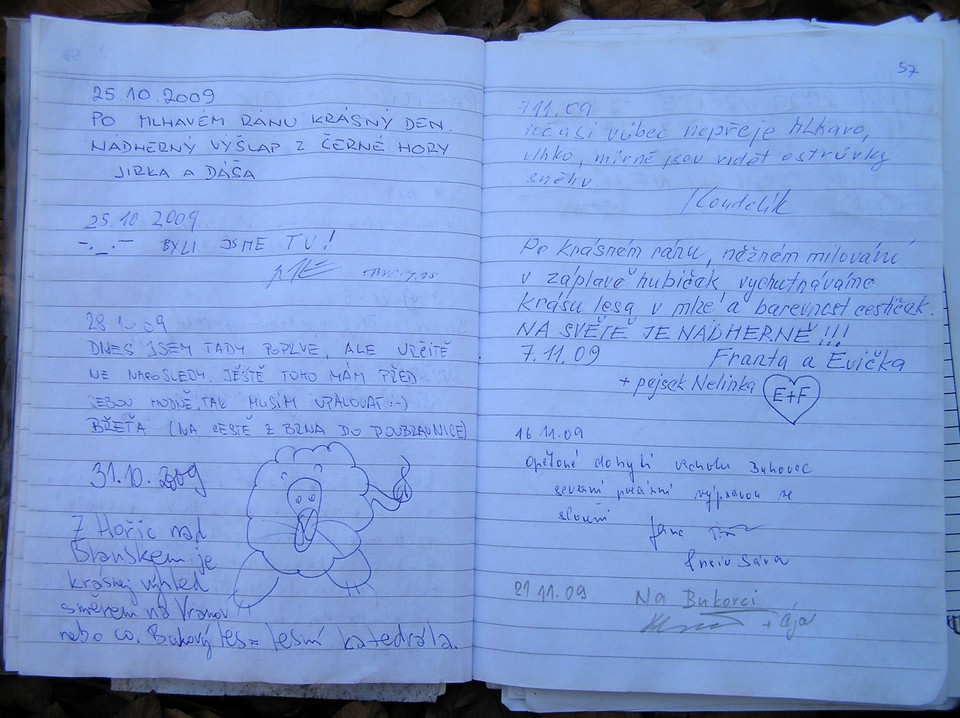 25.10.2009
PO MLHAVÉM RÁNU KRÁSNÝ DEN.
NÁDHERNÝ VÝŠLAP Z ČERNÉ HORY
JIRKA A DÁŠA
25.10 2009
BYLI JSME TU!
28.10.09
DNES JSEM TADY POPLVÉ, ALE URČITĚ
NE NAPOSLEDY. JEŠTĚ TOHO MÁM PŘED
SEBOU HODNĚ, TAK MUSÍM UPALOVAT :-)
BŘEŤA (NA CESTĚ Z BRNA DO DOUBRAVNICE)
31.10.2009
Z Hořic nad
Blanskem je
krásnej výhled
směrem na Vranov
nebo co. Bukový les = lesní katedrála.
57
7.11.09.
počasí vůbec nepřeje mlhavo,
vlhko, mírně jsou vidět ostrůvky
sněhu.
Koudelík
Po krásném ránu, něžném milování
v záplavě hubiček vychutnáváme
krásu lesa v mlze a barevnost cestiček.
NA SVĚTĚ JE NÁDHERNĚ!!!
7.11.09 Franta a Evička
+ pejsek Nelinka E+F
16 11.09
Opětovně dobyli vrcholu Bukovec
severní polární výpravou se
sloumi
Jana
Sára
21 11.09 Na Bukovci
+ Ája